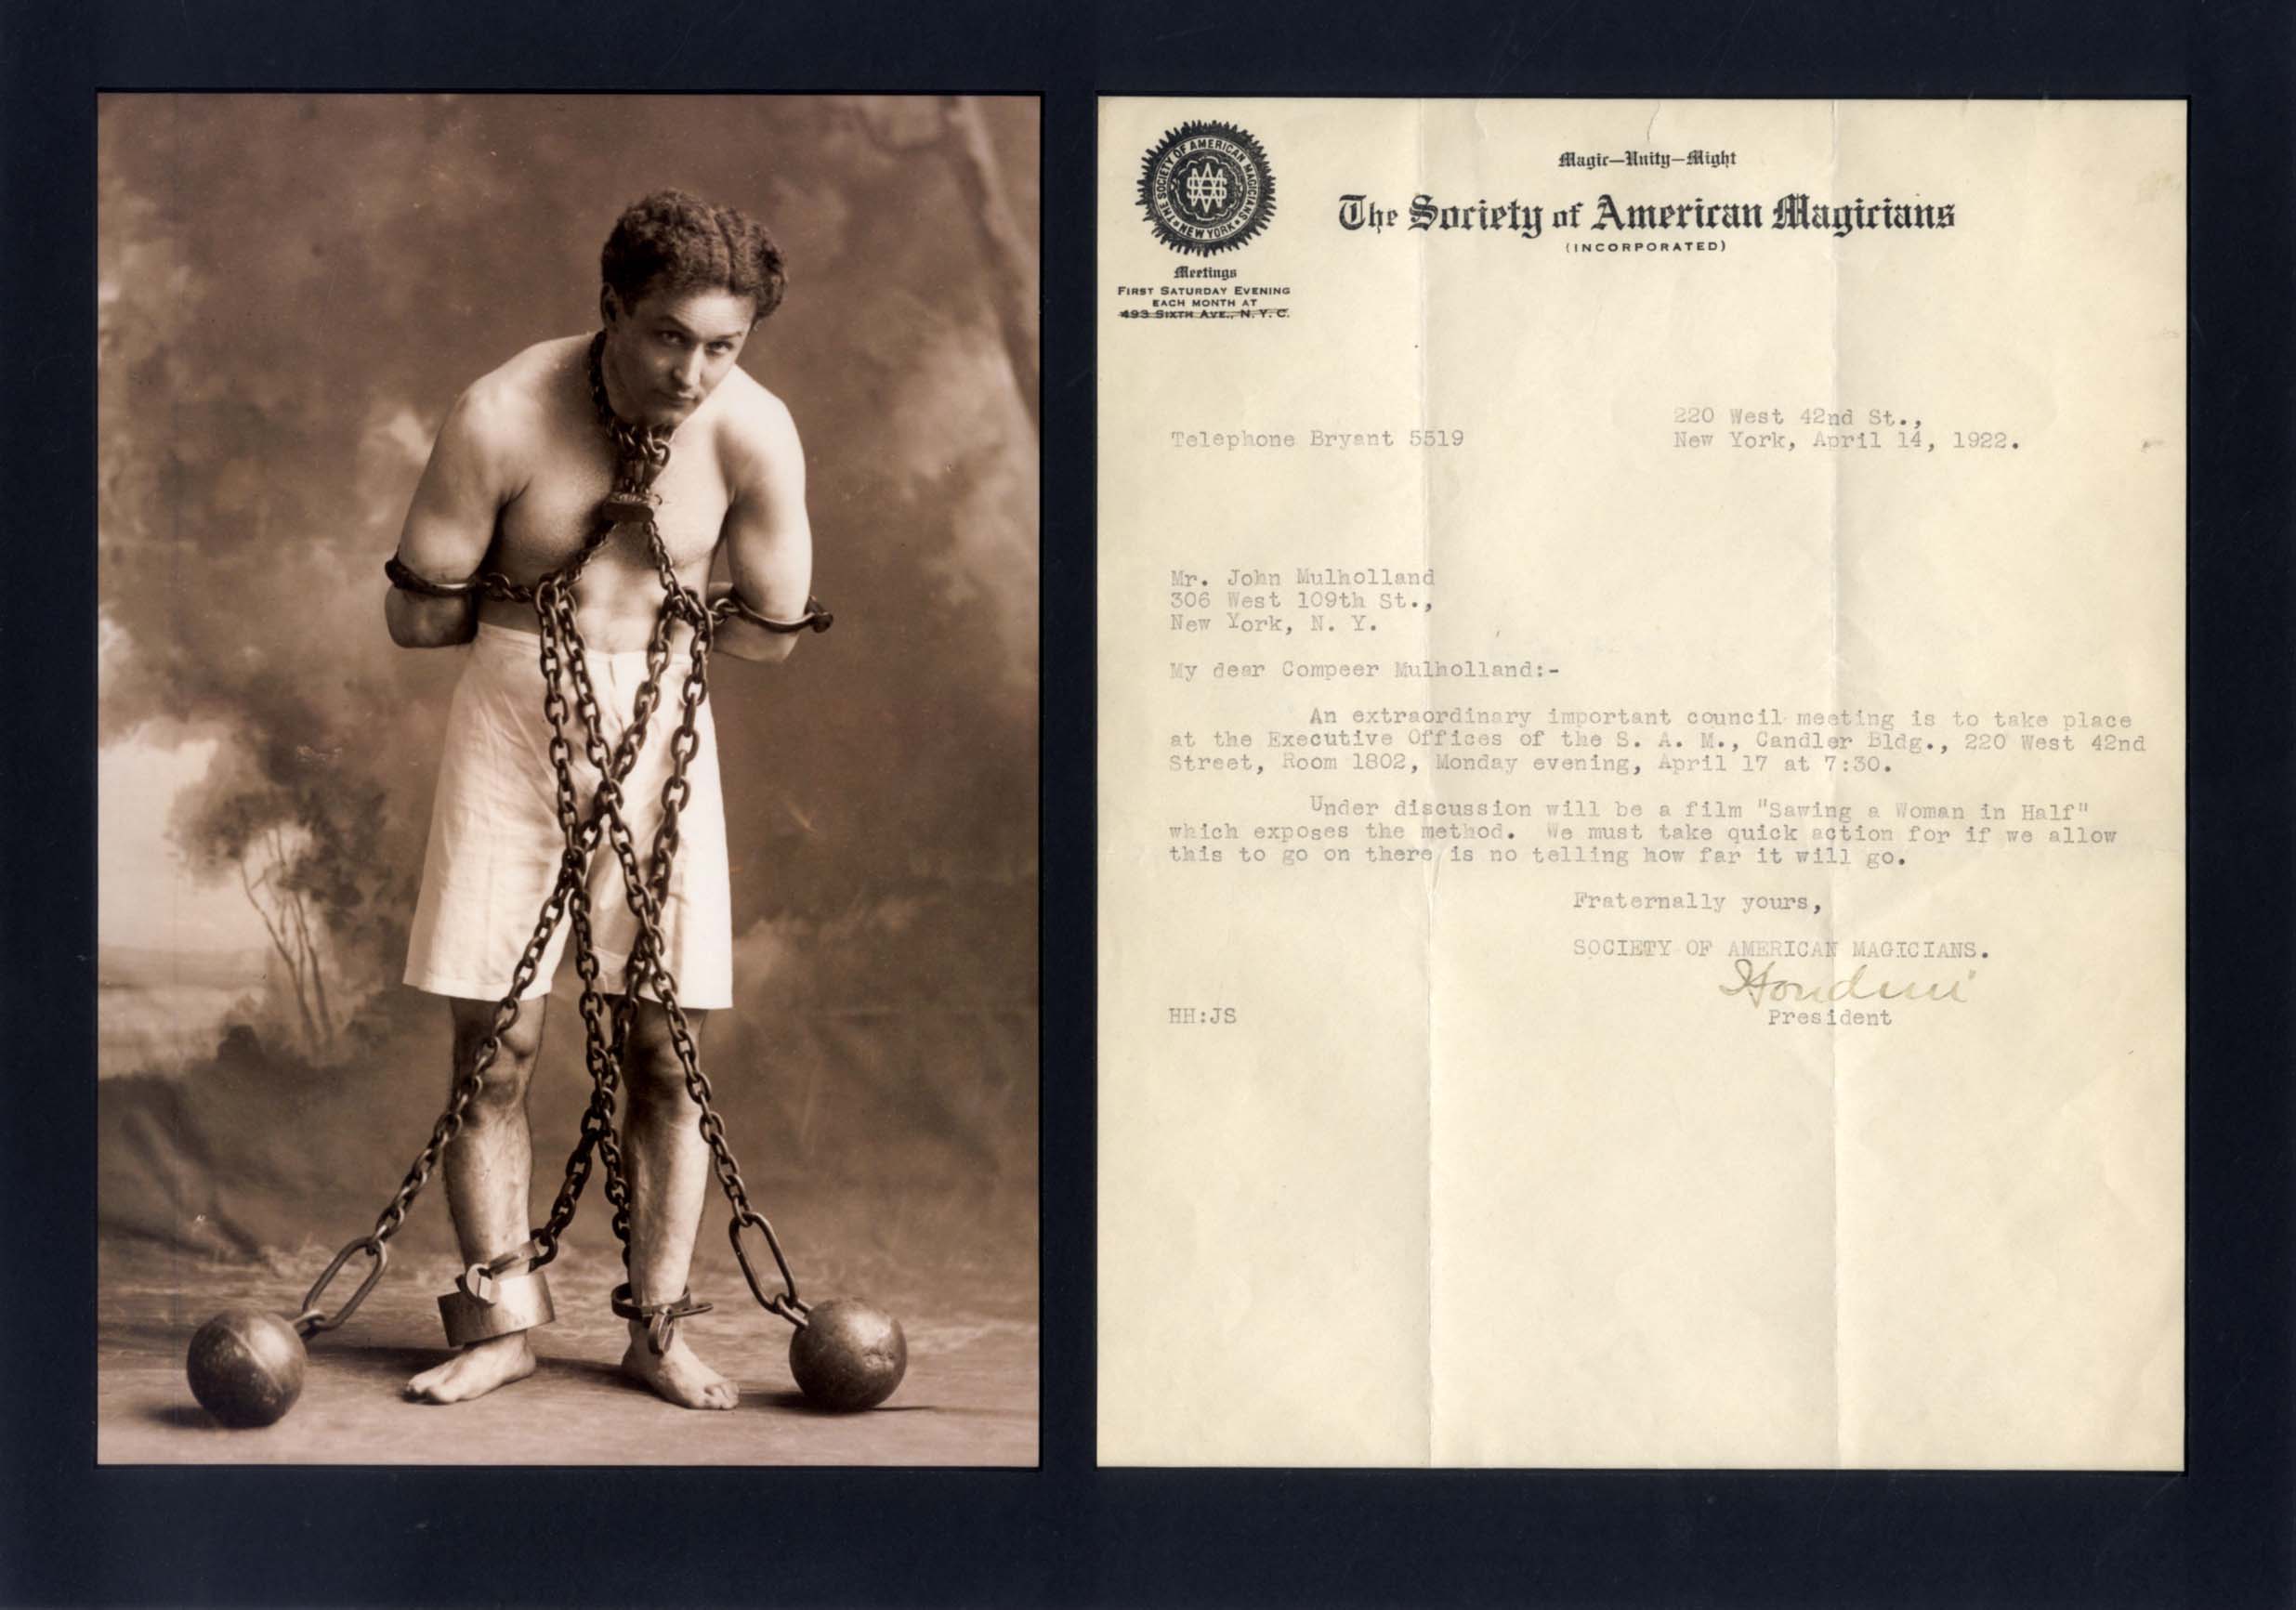 THE SOCIETY OF AMERICAN MAGICIANS
NEW YORK
Magic—Unity—Might
The Society of American Magicians
(INCORPORATED)
Meetings
FIRST SATURDAY EVENING
EACH MONTH AT
493 SIXTH AVE., N.Y.C.
220 West 42nd St.,
Telephone Bryant 5519
New York, April 14, 1922.
Mr. John Mulholland
306 West 109th St.,
New York, N. Y.
My dear Compeer Mulholland:-
An extraordinary important council meeting is to take place
at the Executive Offices of the S. A. M., Candler Bldg., 220 West 42nd
Street, Room 1802, Monday evening, April 17 at 7:30.
Under discussion will be a film "Sawing a Woman in Half"
which exposes the method. We must take quick action for if we allow
this to go on there is no telling how far it will go.
Fraternally yours,
SOCIETY OF AMERICAN MAGICIANS.
Houdini
HH:JS
President